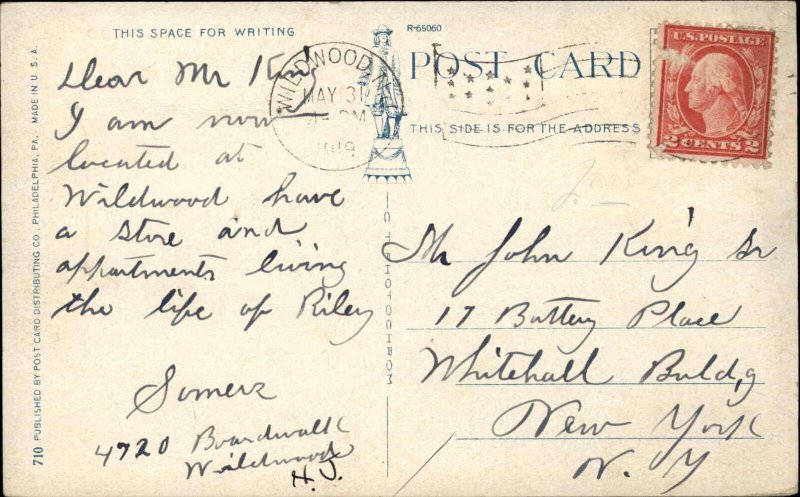 THIS SPACE FOR WRITING
Dear Mr King
I am now
located at
Wildwood have
a store and
appartments living
the life of Riley
Somers
4720 Boardwalk
Wildwood
N.J.
710 PUBLISHED BY POST CARD DISTRIBUTING CO., PHILADELPHIA, PA. MADE IN U.S.A.
R-65060
POST CARD
THIS SIDE IS FOR THE ADDRESS
WILDWOOD
MAY 31
PM
1919
U.S. POSTAGE
2 CENTS 2
Mr John King Sr
17 Battery Place
Whitehall Buld,g
New York
N. Y